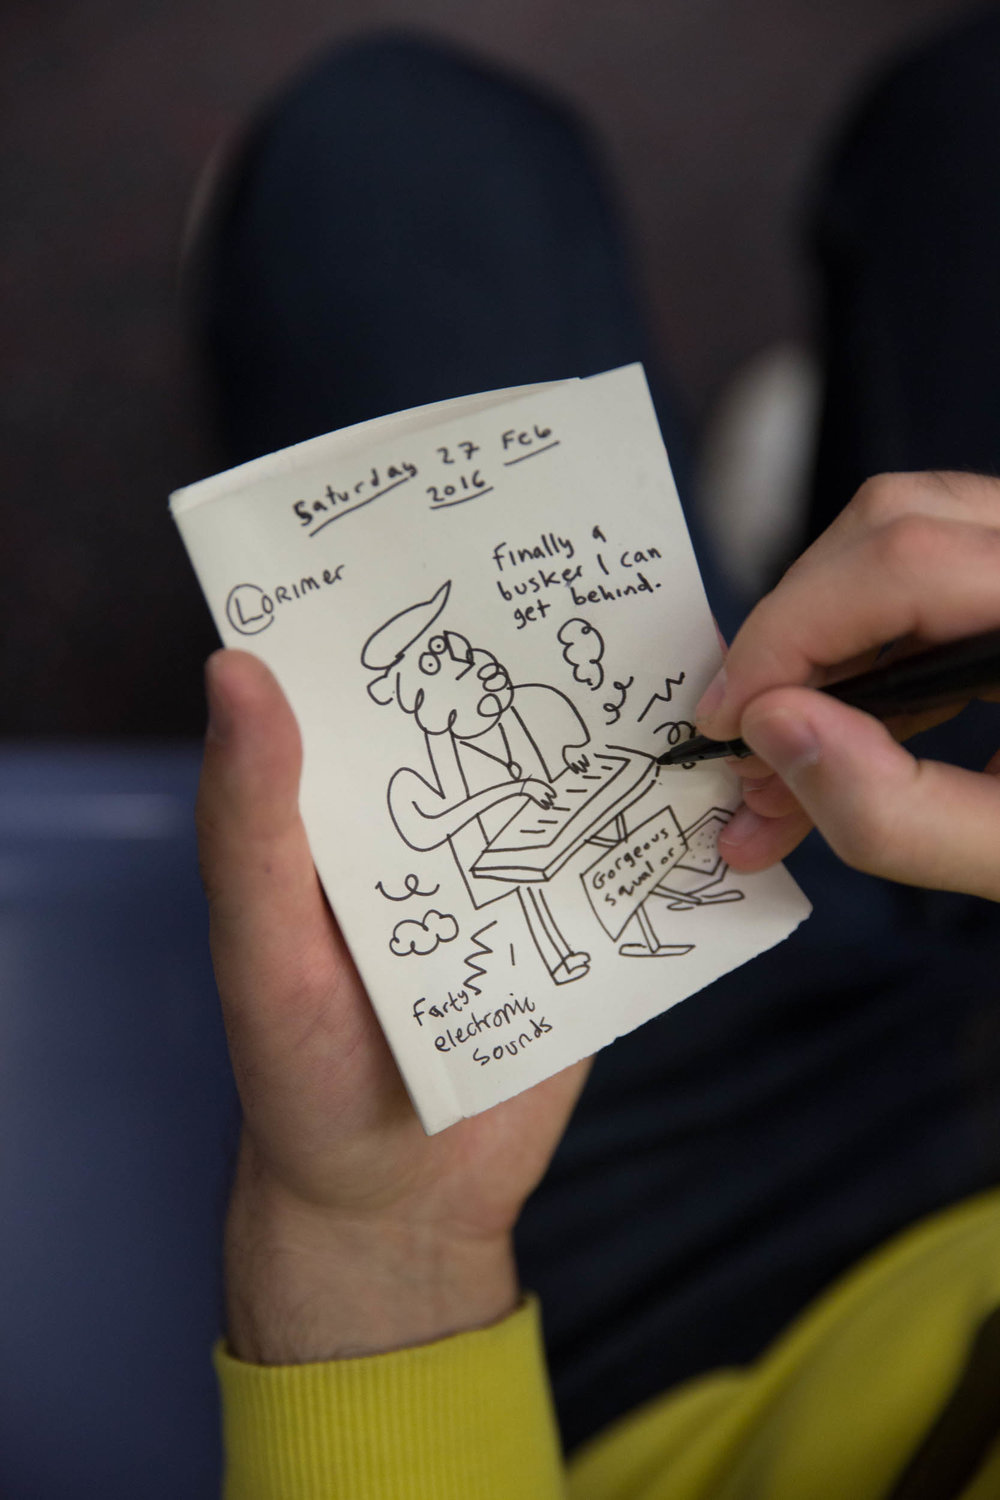 Saturday 27 Feb
2016
LORIMER
Finally a
busker I can
get behind.
Gorgeous
squalor
Farty
electronic
sounds